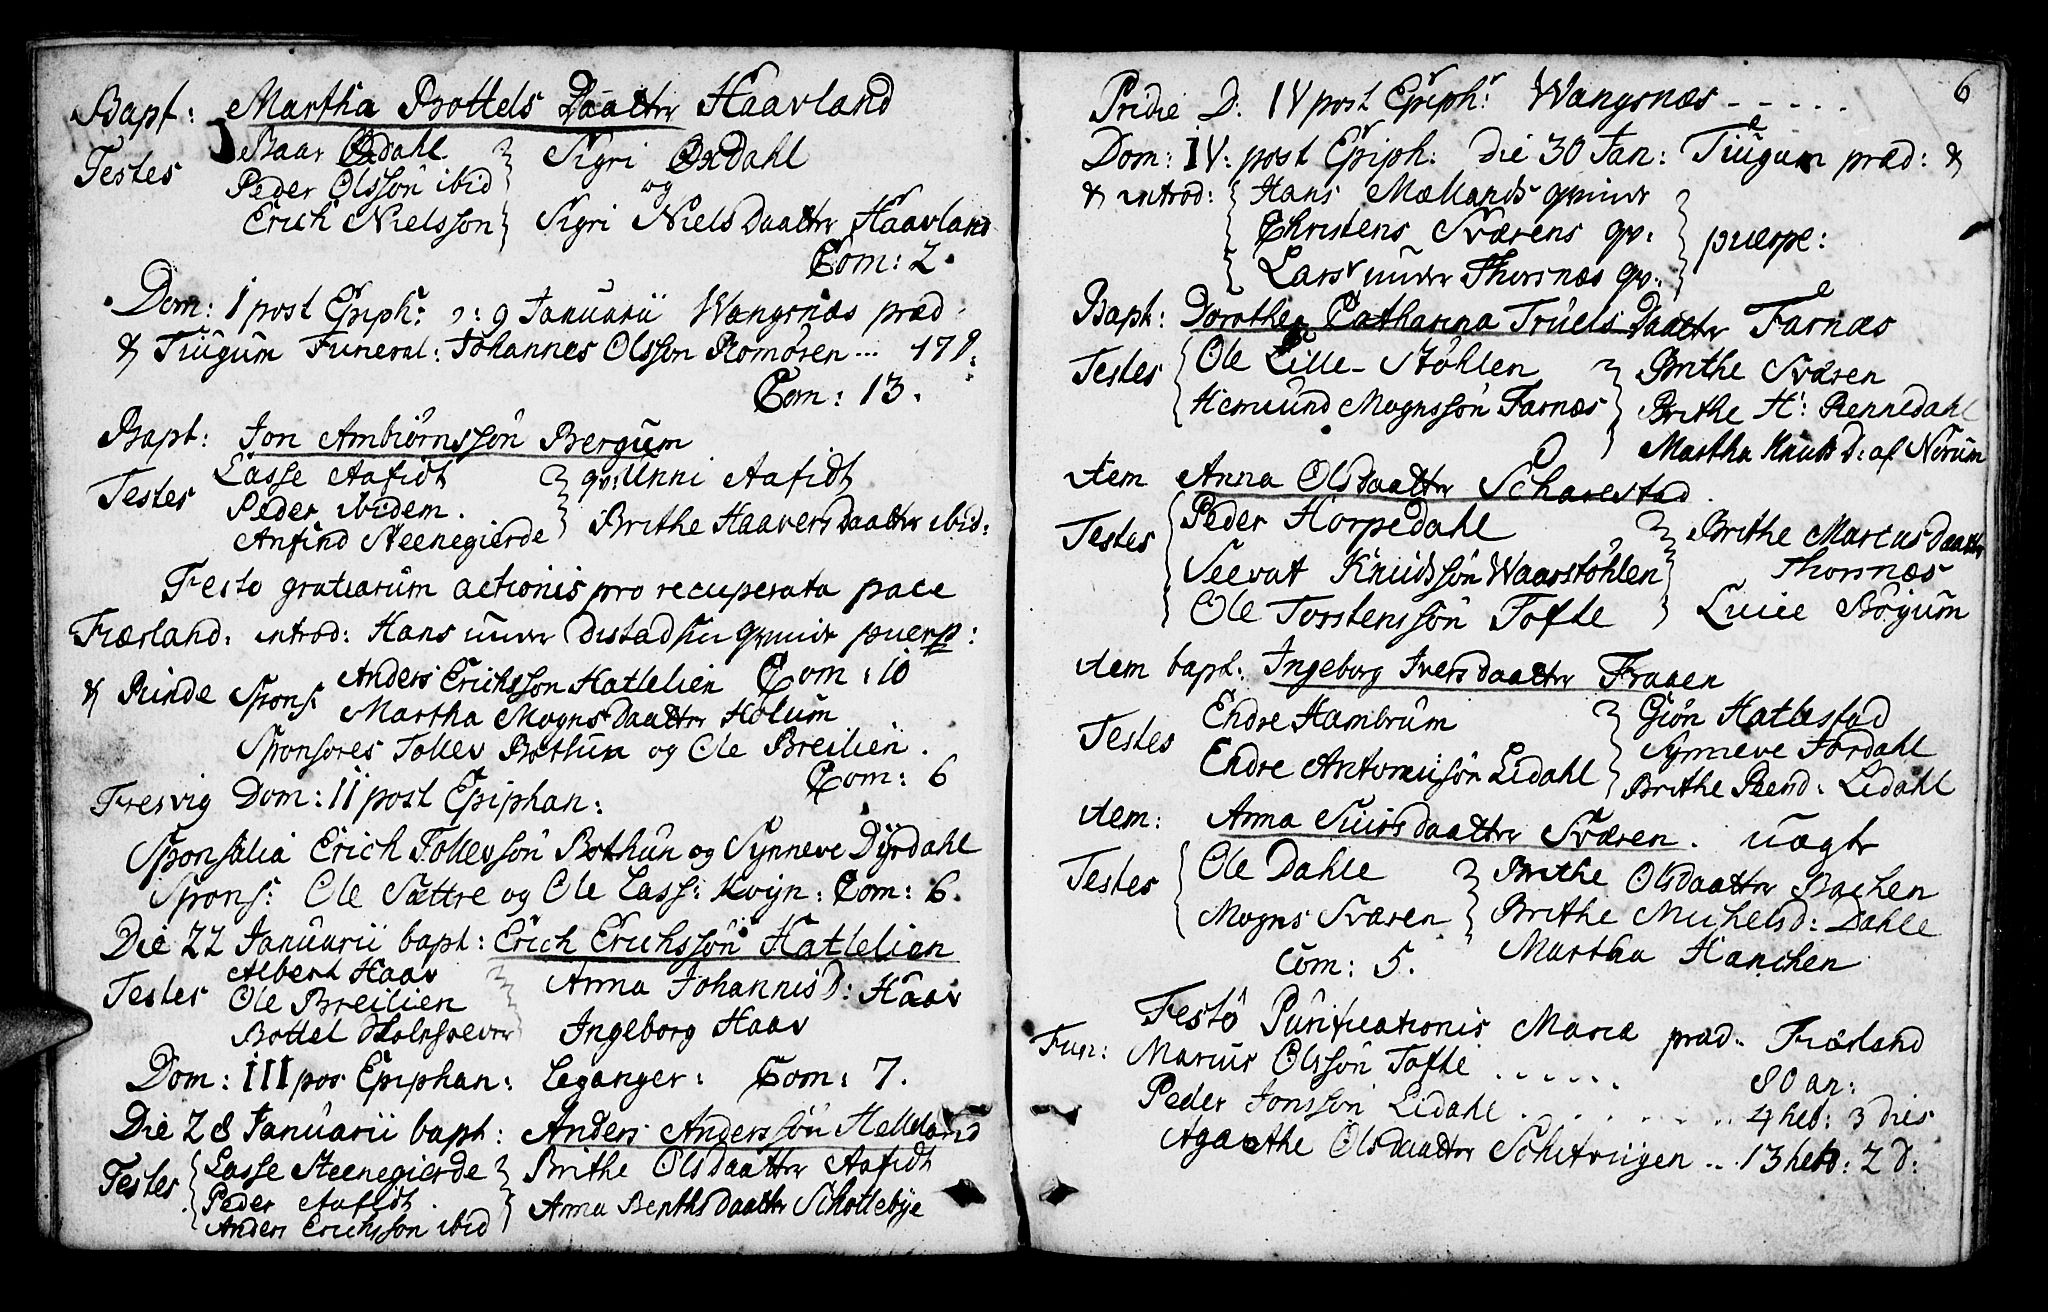 Bapt: Martha Bottels Daatter Haavland
Testes
Baar Oxdahl
Peder Olssøn ibid
Erich Nielsson
Sigri Oxdahl
og
Sigri Niels Daatter Haavland
Com: 2.
Dom: 1 post Epiph: ɔ: 9 Januarii Wangsnæs præd:
& Tiugum Funeral: Johannes Olsson Romøren ... 17
Com: 13.
Bapt: Jon Ambiørnssøn Bergum
Testes
Lasse Aafidt
Peder ibidem.
Anfind Steenegierde
qv: Unni Aafidt
Brithe Haavers Daatter ibid:
Festo gratiarum actionis pro recuperata pace
Fiærland: introd: Hans under Distad sin qvinde puerp:
Com: 10
& Rinde Spons: Anders Erichsson Hatlelien
Martha Mogns Daatter Holum
Sponsores Tollev Bothun og Ole Breilien.
Com: 6
Fresvig Dom: II post Epiphan:
Sponsalia Erich Tollevssøn Bothun og Synneve Dyrdahl
Spons: Ole Sættre og Ole Lass: Hvijn: Com: 6.
Die 22 Januarii bapt: Erich Erichssøn Hatlelien
Testes
Albert Haav
Ole Breilien
Bottel
Anna Johannis D: Haav
Ingeborg Haav
Dom: III pos Epiphan: Leganger: Com: 7.
Die 28 Januarii bapt: Anders Anderssøn Helleland
Testes
Lasse Steenegierde
Peder Aafidt.
Anders Erichsson ibid
Brithe Ols Daatter Aafidt
Anna Benths Daatter Schottebye
6
Pridie D: IV post Epiph: Wangsnæs - - - - -
Dom: IV: post Epiph: Die 30 Jan: Tiugum præd: &
& introd: Hans Mællands qvinde
Christens Sværens qv:
Lars under Thorsnæs qv:
puerpe:
Bapt: Dorothea Catharina Truels Daatter Farnæs
Testes
Ole Lille-Støhlen
Hemund Mognssøn Farnæs
Brithe Sværen
Brithe H: Rennedahl
Martha Knuts D: af Norum
item Anna Ols Daatter Scharestad.
Testes
Peder Horpedahl
Seevat Knudssøn Waarstøhlen
Ole Torstenssøn Tofte
Brithe Marcus Daatter
Thorsnæs
Lucie Bøyum
item bapt: Ingeborg Ivers Daatter Fraaen
Testes
Endre Hambrum
Endre Antonissøn Lidahl
Giøn Hatlestad
Synneve Jordahl
Brithe Rend: Lidahl
item: Anna Siurs Daatter Sværen. uægte
Testes
Ole Dahle
Mogns Sværen
Brithe Olsdaatter Bachen
Brithe Michelsd: Dahle
Martha Hanchen
Com: 5.
Festo Purificationis Mariæ præd: Fiærland
Fun: Marcus Olssøn Tofte . . . . . . 80 an:
Peder Jonssøn Lidahl . . . . . . . . 4 heb: 3 dies
Agaethe Olsdaatter Schitvigen .. 13 heb: 2 d: